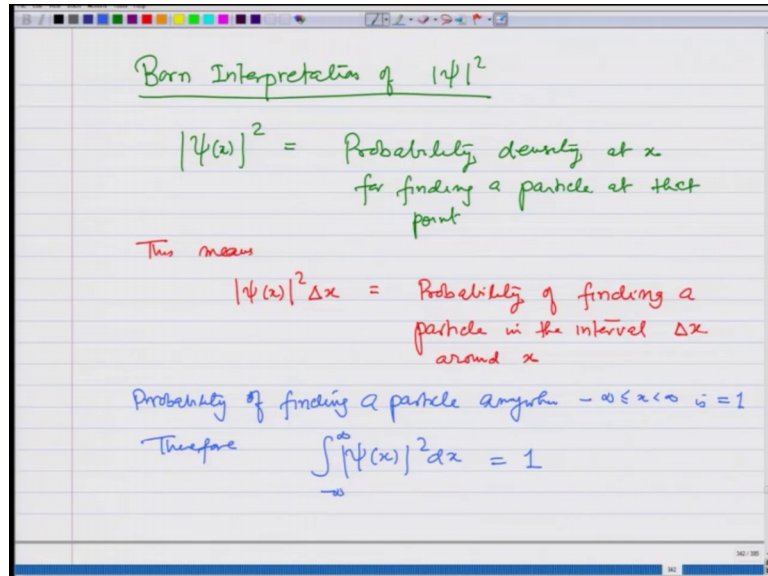 Born Interpretation of |ψ|²
|ψ(x)|² = Probability density at x
for finding a particle at that
point
This means
|ψ(x)|² Δx = Probability of finding a
particle in the interval Δx
around x
Probability of finding a particle anywhere - ∞ ≤ x < ∞ is = 1
Therefore ∫_{-∞}^{∞} |ψ(x)|² dx = 1
342 / 380
342